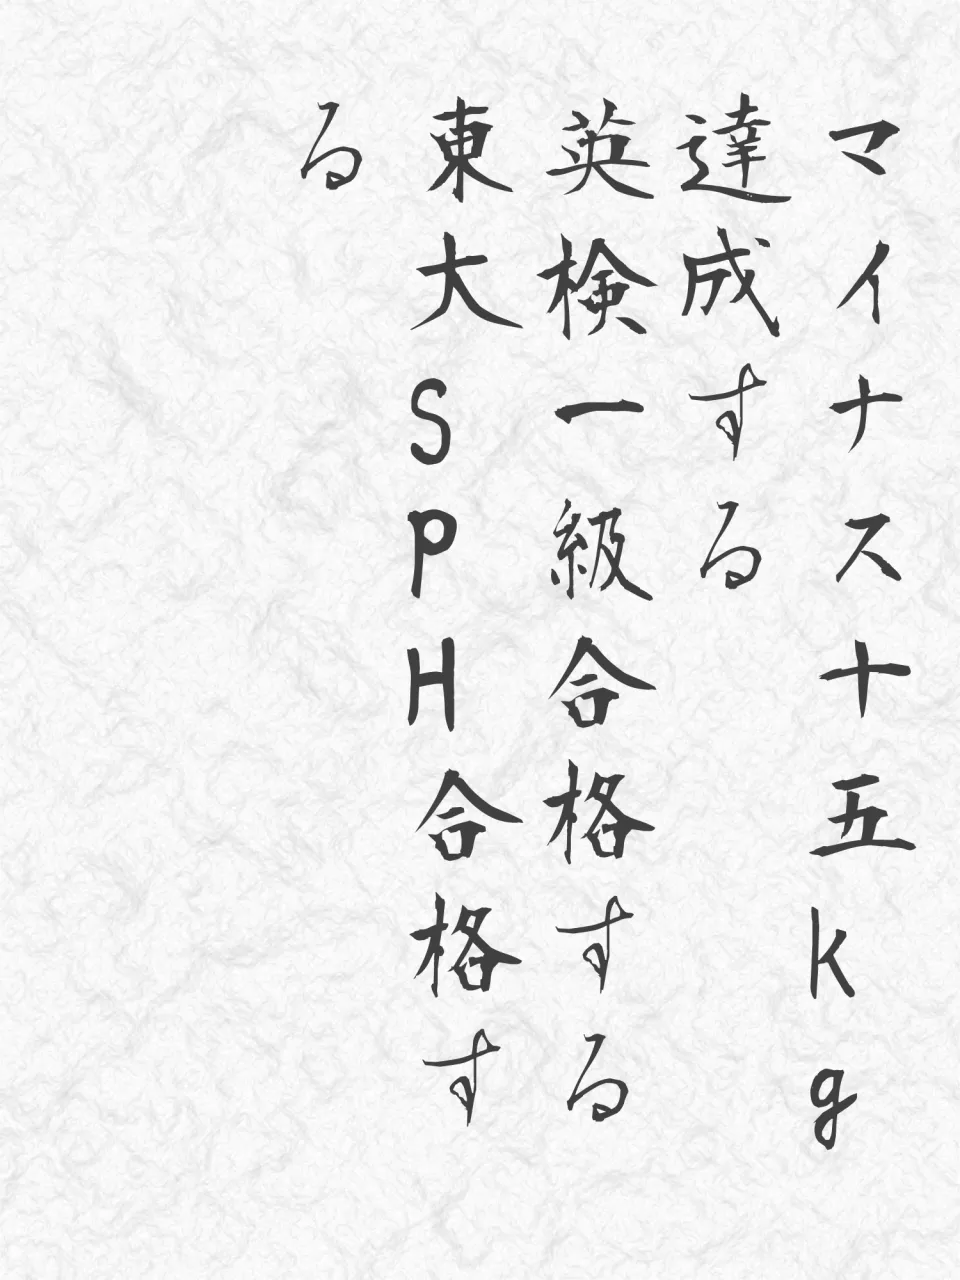 マイナス十五kg
達成する
英検一級合格する
東大SPH合格す
る